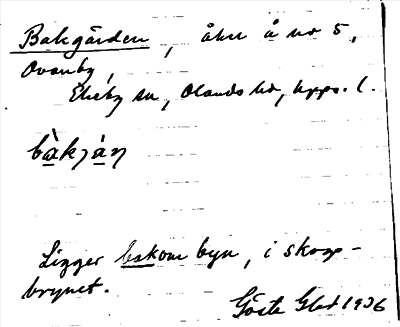 Bakgården, åker å no 5,
Ovanby,
Ekeby sn, Olands hd, Upps. l.
bàkján
Ligger bakom byn, i skogs-
brynet.
Gösta Glad 1936